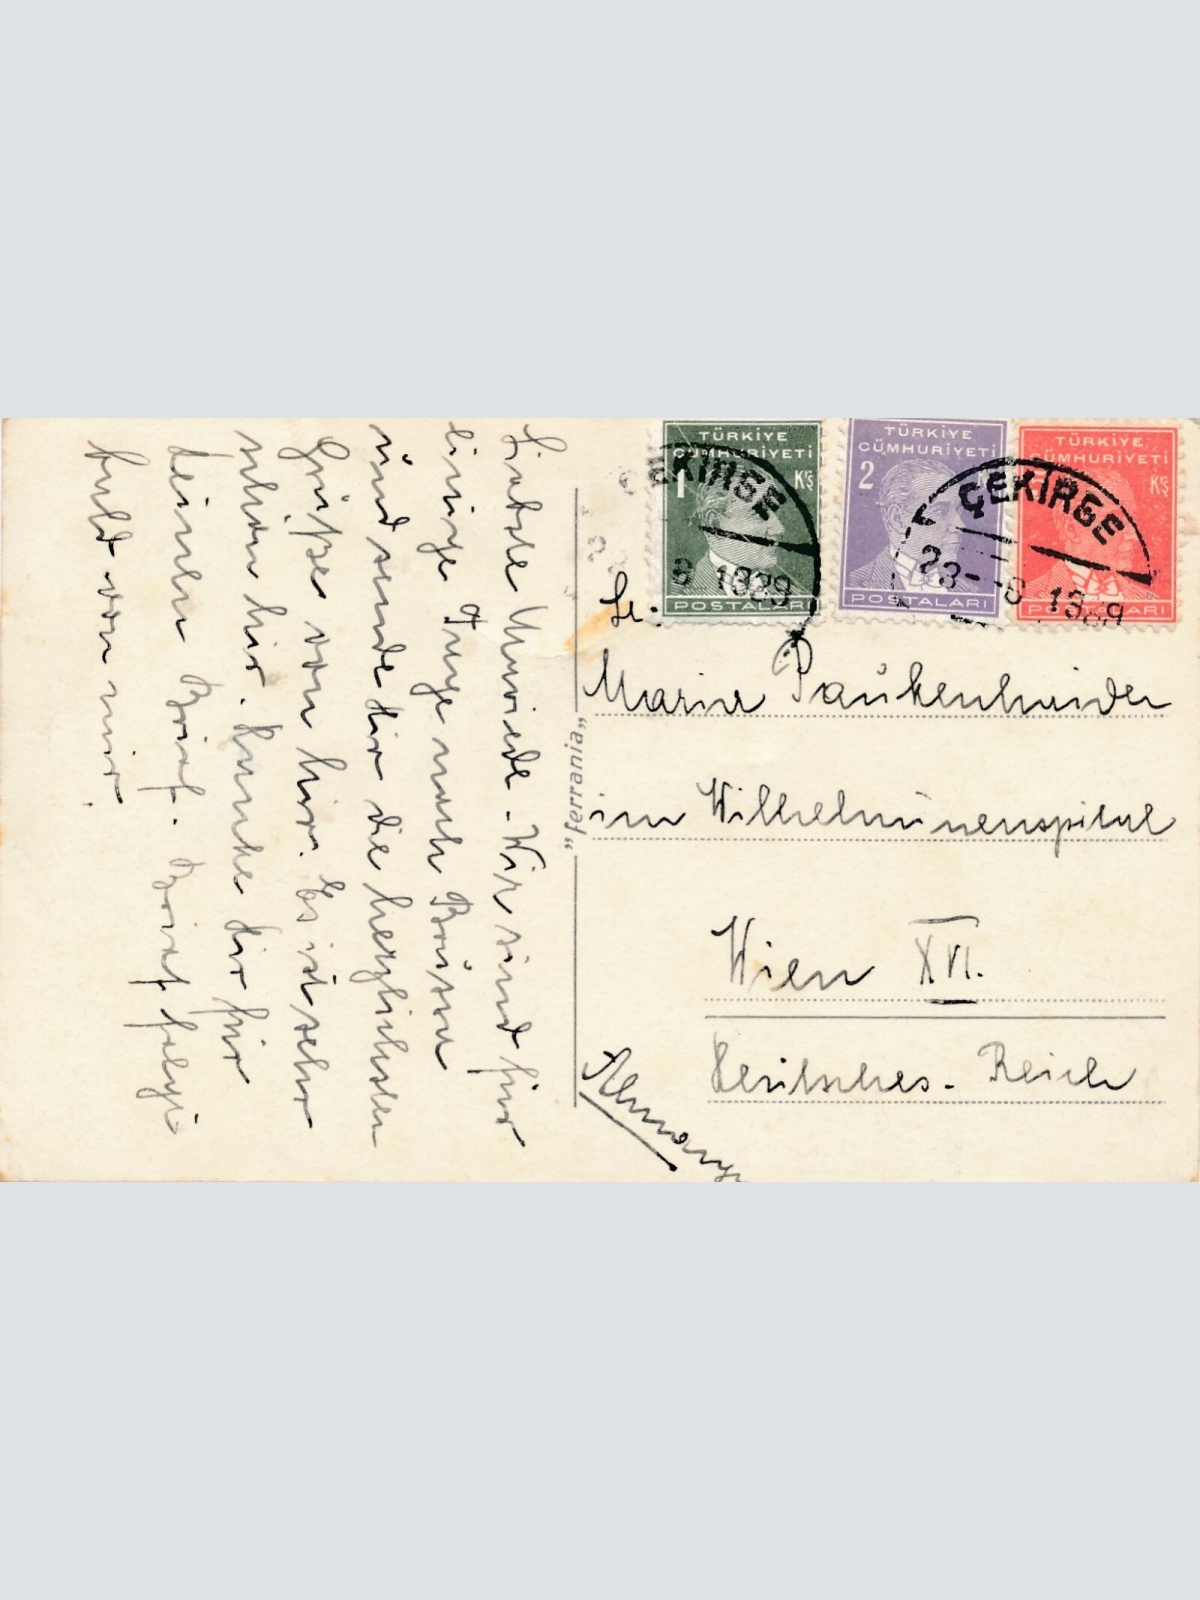 TÜRKİYE
CÜMHURİYETİ
1 Krş
POSTALARI
TÜRKİYE
CÜMHURİYETİ
2
POSTALARI
TÜRKİYE
CÜMHURİYETİ
Krş
POSTALARI
ÇEKİRGE
8 1939
ÇEKİRGE
23-8 1939
Marie Paukenhaider
im Wilhelminenspital
Wien XVI.
Deutsches-Reich
Almanya
"Ferrania"
Liebste Wir sind für
einige Tage nach Brussa
und sende dir die herzlichsten
Grüße von hier. Es ist sehr
schön hier. Danke dir für
deinen Brief. Brief folgt
bald von mir.